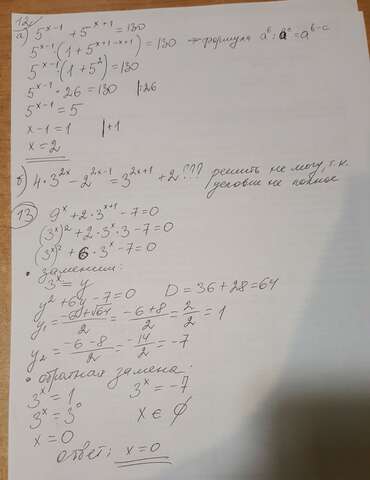 12.
а) 5^(x-1) + 5^(x+1) = 130
5^(x-1)·(1 + 5^(x+1-x+1)) = 130 → формула a^b : a^c = a^(b-c)
5^(x-1)(1 + 5^2) = 130
5^(x-1)·26 = 130 |:26
5^(x-1) = 5
x-1 = 1 |+1
x = 2
б) 4·3^(2x) - 2^(2x-1) = 3^(2x+1) + 2^??? решить не могу, т.к.
условие не полное
13
9^x + 2·3^(x+1) - 7 = 0
(3^x)^2 + 2·3^x·3 - 7 = 0
(3^x)^2 + 6·3^x - 7 = 0
• заменим:
3^x = y
y^2 + 6y - 7 = 0 D = 36 + 28 = 64
y₁ = (-6+√64)/2 = (-6+8)/2 = 2/2 = 1
y₂ = (-6-8)/2 = -14/2 = -7
• обратная замена:
3^x = 1 3^x = -7
3^x = 3^0 x ∈ ∅
x = 0
ответ: x = 0